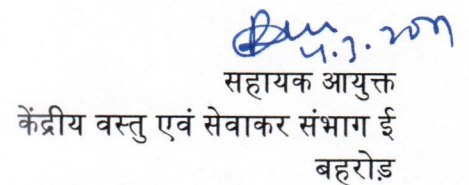 4.3.2011
सहायक आयुक्त
केंद्रीय वस्तु एवं सेवाकर संभाग ई
बहरोड़